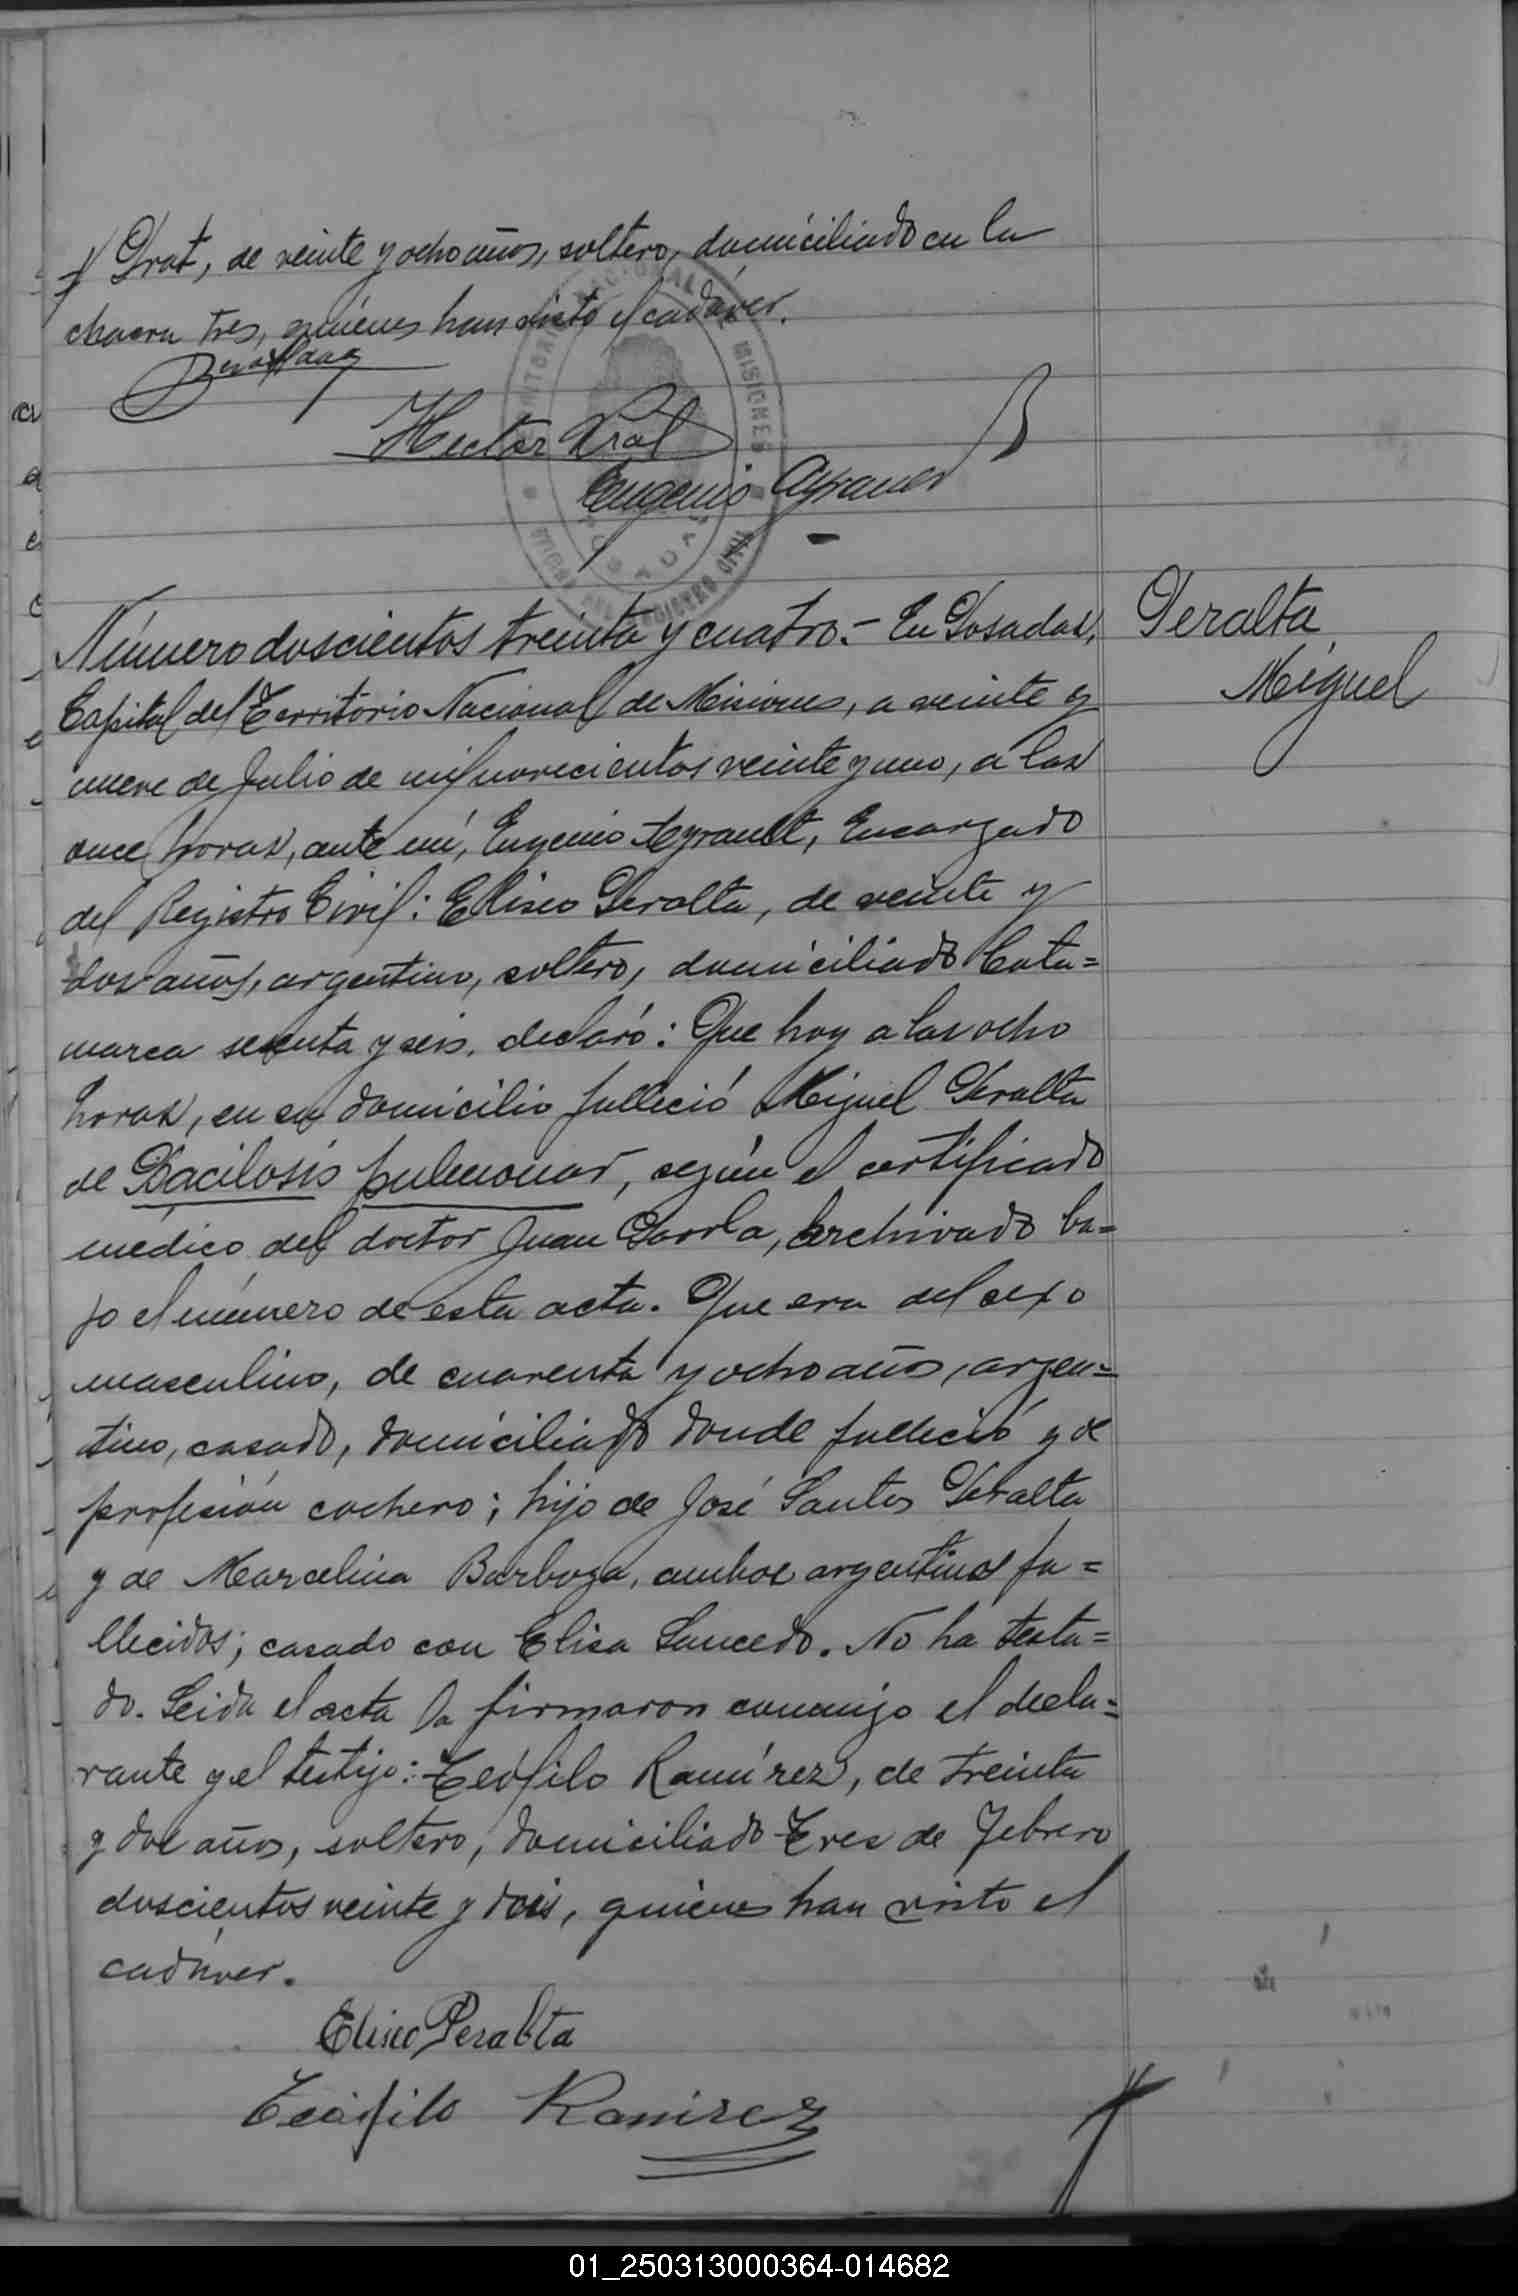 Prat, de veinte y ocho años, soltero, domiciliado en la
chacra tres, quienes han visto el cadáver.
Hector Prat
Eugenio Ayrault
TERRITORIO NACIONAL DE MISIONES
REGISTRO CIVIL
POSADAS
Número doscientos treinta y cuatro.- En Posadas,
Peralta
Miguel
Capital del Territorio Nacional de Misiones, a veinte y
nueve de Julio de mil novecientos veinte y uno, a las
once horas, ante mí, Eugenio Ayrault, Encargado
del Registro Civil: Eliseo Peralta, de veinte y
dos años, argentino, soltero, domiciliado Cata=
marca sesenta y seis, declaró: Que hoy a las ocho
horas, en su domicilio falleció Miguel Peralta
de Bacilosis pulmonar, según el certificado
médico del doctor Juan, archivado ba=
jo el número de esta acta. Que era del sexo
masculino, de cuarenta y ocho años, argen=
tino, casado, domiciliado donde falleció y de
profesión cochero; hijo de José Santos Peralta
y de Marcelina Barboza, ambos argentinos fa=
llecidos; casado con Elisa Saucedo. No ha testa=
do. Leida el acta la firmaron conmigo el decla=
rante y el testigo: Teófilo Ramírez, de treinta
y dos años, soltero, domiciliado Tres de Febrero
doscientos veinte y dos, quienes han visto el
cadáver.
Eliseo Peralta
Teófilo Ramirez
01_250313000364-014682